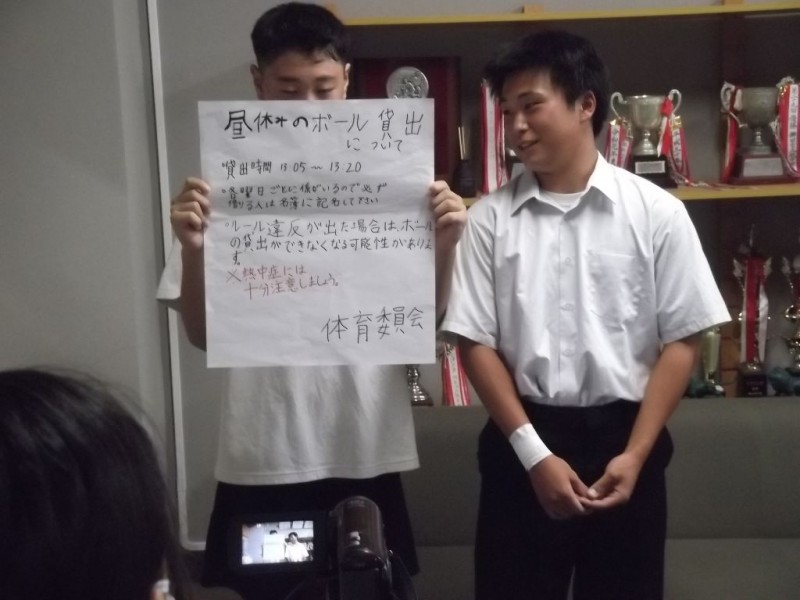 昼休みのボール貸出
について
・貸出時間 13:05～13:20
・各曜日ごとに係がいるので必ず
借りる人は名簿に記名して下さい
・ルール違反が出た場合は、ボール
の貸出ができなくなる可能性がありま
す。
※熱中症には
十分注意しましょう。
体育委員会